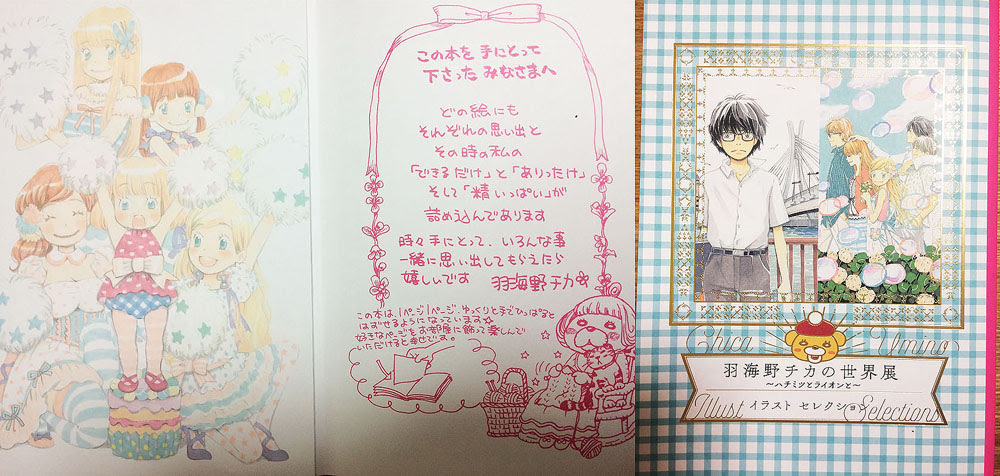 この本を 手にとって
下さった みなさまへ
どの絵にも
それぞれの思い出と
その時の私の
「できるだけ」と「ありったけ」
そして「精いっぱい」が
詰め込んであります
時々手にとって、いろんな事
一緒に思い出してもらえたら
嬉しいです 羽海野チカ
この本は、1ページ1ページ、ゆっくりと手でひっぱると
はずせるようになっています☆
好きなページをお部屋に飾って楽しんで
いただけると幸せです。
Chica Umino
羽海野チカの世界展
〜ハチミツとライオンと〜
Illust イラスト セレクション Selections